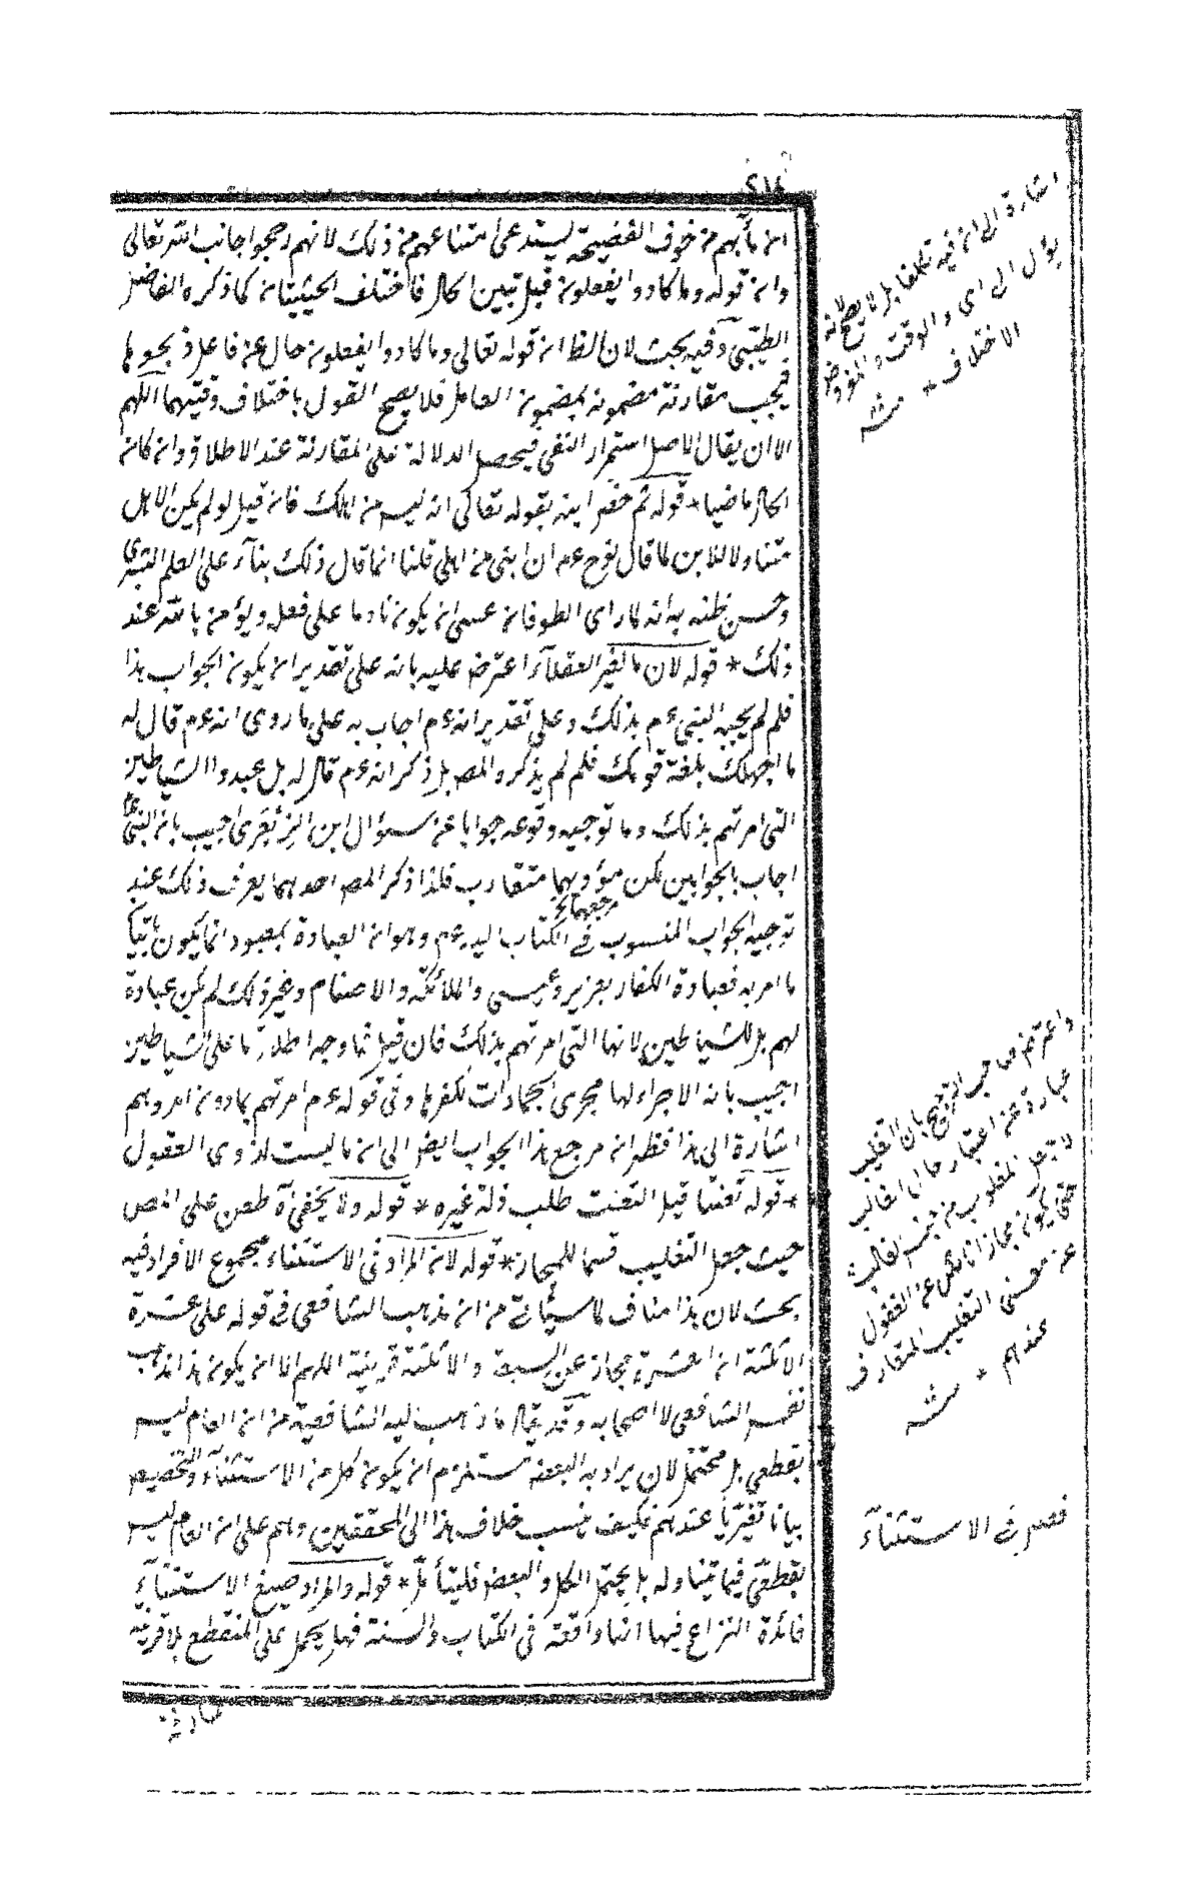 ان ما بهم من خوف الفضيحة يستدعى امتناعهم من ذلك لانهم رجحوا جانب الله تعالى
وان قوله وما كادوا يفعلون قبل تبين الحال فاختلف الحيثيتان كما ذكره الفاضل
الطيبى وفيه بحث لان الظ ان قوله تعالى وما كادوا يفعلون حال عن فاعل فذبحوها
فيجب مقارنة مضمونه بمضمون العامل فلا يصح القول باختلاف وقتيهما اللهم
الا ان يقال الاصل استمرار النفى فيحصل الدلالة على المقارنة عند الاطلاق وان كان
الحال ماضيا * قوله ثم خص ابنه بقوله تعالى انه ليس من اهلك فان قيل لو لم يكن الاهل
متناولا للابن لما قال نوح عم ان ابنى من اهلى قلنا انما قال ذلك بناء على العلم البشرى
وحسن ظنه به انه لما راى الطوفان عسى ان يكون نادما على فعله ويؤمن بالله عند
ذلك * قوله لان ما لغير العقلاء اعترض عليه بانه على تقدير ان يكون الجواب هذا
فلم لم يجبه النبى عم بذلك وعلى تقدير انه عم اجاب به على ما روى انه عم قال له
ما اجهلك بلغة قومك فلم لم يذكره المص بل ذكر انه عم قال له بل عبدوا الشياطين
التى امرتهم بذلك وما توجيه وقوعه جوابا عن سؤال ابن الزبعرى اجيب بان النبى عم
اجاب بالجوابين لكن مؤديهما متقارب فلذا ذكر المص احدهما يعرف ذلك عند
مرجعهما نخ
توجيه الجواب المنسوب فى الكتاب اليه عم وهو ان العبادة لمعبود انما يكون باتباع
ما امر به فعبادة الكفار بعزير وعيسى والملائكة والاصنام وغير ذلك لم يكن عبادة
لهم بل للشياطين لانها التى امرتهم بذلك فان قيل فما وجه اطلاق ما على الشياطين
اجيب بانه الاجراء لها مجرى الجمادات لكفرها وفى قوله عم امرتهم بما دون امروهم
اشارة الى هذا فظهر ان مرجع هذا الجواب ايض الى ان ما ليست لذوى العقول
* قوله تعنتا قيل التعنت طلب زلة غيره * قوله ولا يخفى اه طعن على المص
حيث جعل التغليب قسما للمجاز * قوله لان المراد فى الاستثناء مجموع الافراد فيه
بحث لان هذا مناف لما سيأتى من ان مذهب الشافعى فى قوله على عشرة
الا ثلثة ان العشرة مجاز عن السبعة والا ثلثة قرينة اللهم الا ان يكون هذا مذهب
نفس الشافعى لا اصحابه وقد يقال ما ذهب اليه الشافعية من ان العام ليس
بقطعى بل محتمل لان يراد به البعض مستلزم ان يكون كل من الاستثناء والتخصيص
بيانا تفسيريا عندهم فكيف ينسب خلاف هذا الى المحققين وهم على ان العام ليس
بقطعى فيما يتناوله بل يحتمل الكل والبعض فليتأمل * قوله والمراد صيغ الاستثناء
فائدة النزاع فيها انها واقعة فى الكتاب والسنة فهل يحمل على المنقطع بلا قرينة
اشارة الى ان فيه تكلفا بل لا يصح لانه
يؤل الى اى والوقت والمفروض
الاختلاف * منه
واعترض صاحب الترجيح بان التغليب
عبارة عن اعتبار حال الغالب
لا جعل المغلوب من جنس الغالب
حتى يكون مجازا
عن معنى التغليب المتعارف
عندهم * منه
فصل فى الاستثناء